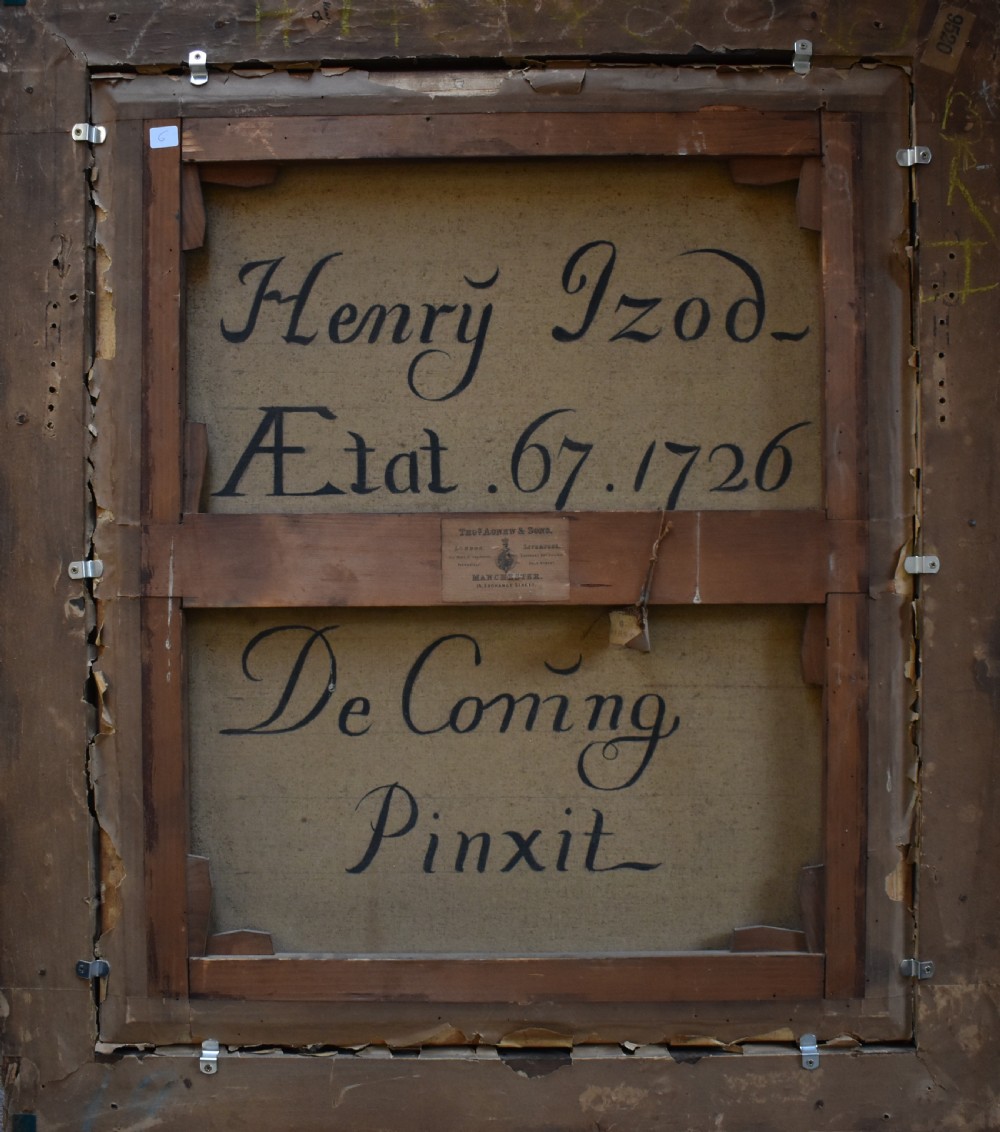 9520
6
Henrÿ Izod
Ætat . 67 . 1726
THOS. AGNEW & SONS.
LONDON LIVERPOOL
MANCHESTER
De Com̆ing
Pinxit